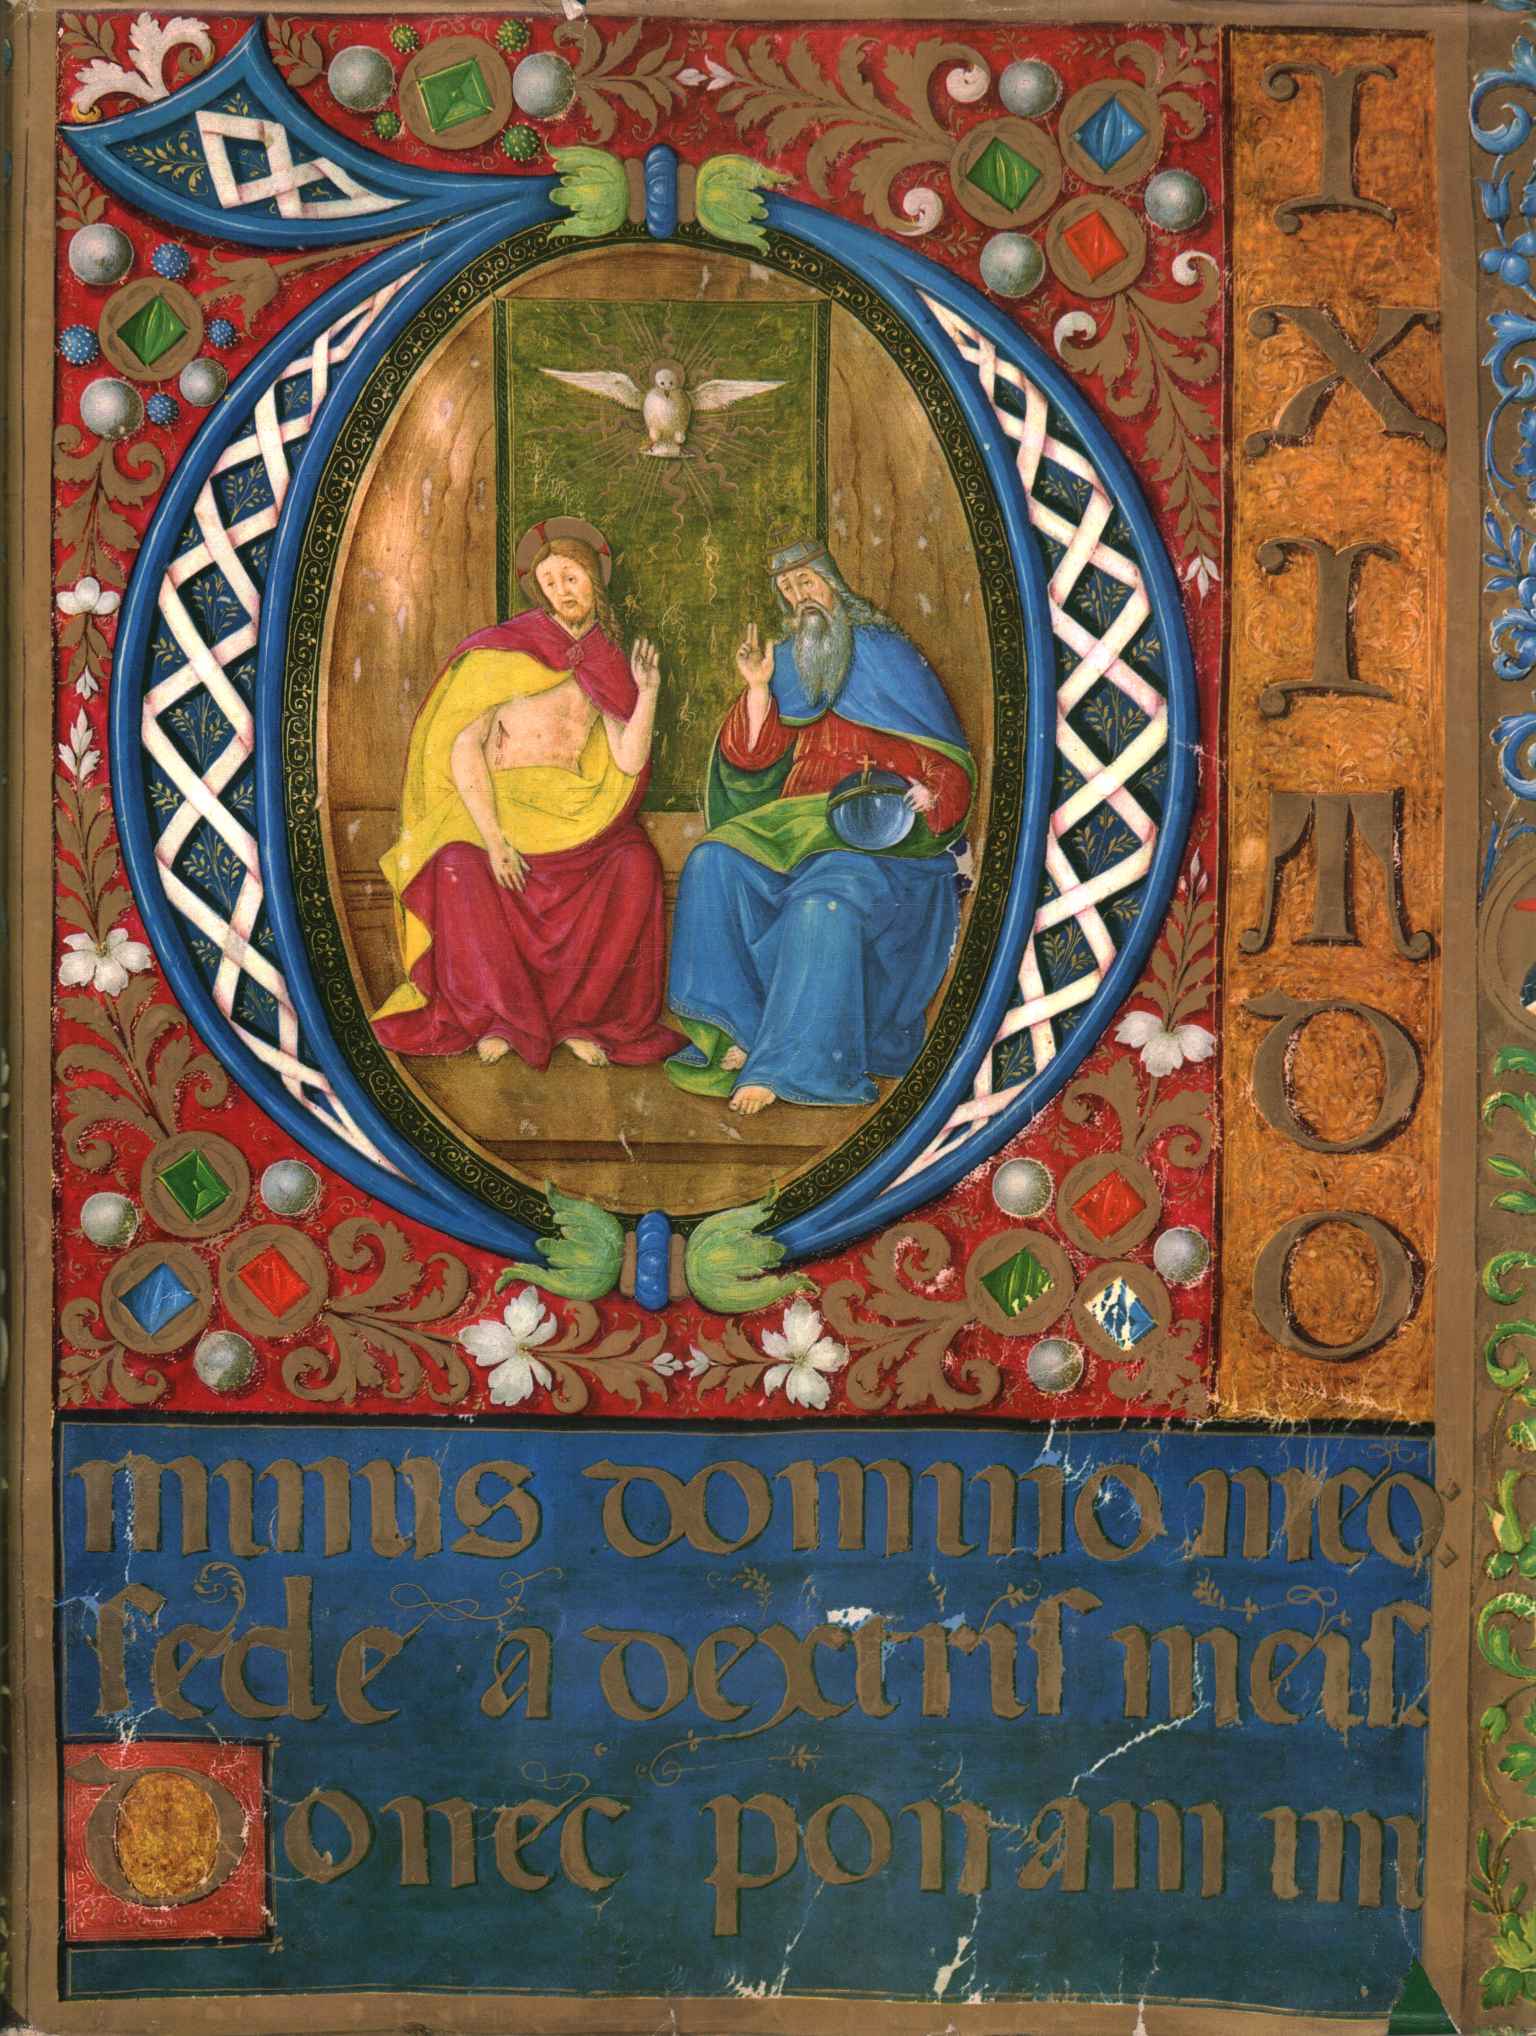 DIXIT DO
minus domino meo:
sede a dextris meis
Donec ponam in